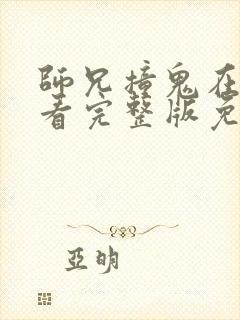 師兄撞鬼在
看完整版免
亞明